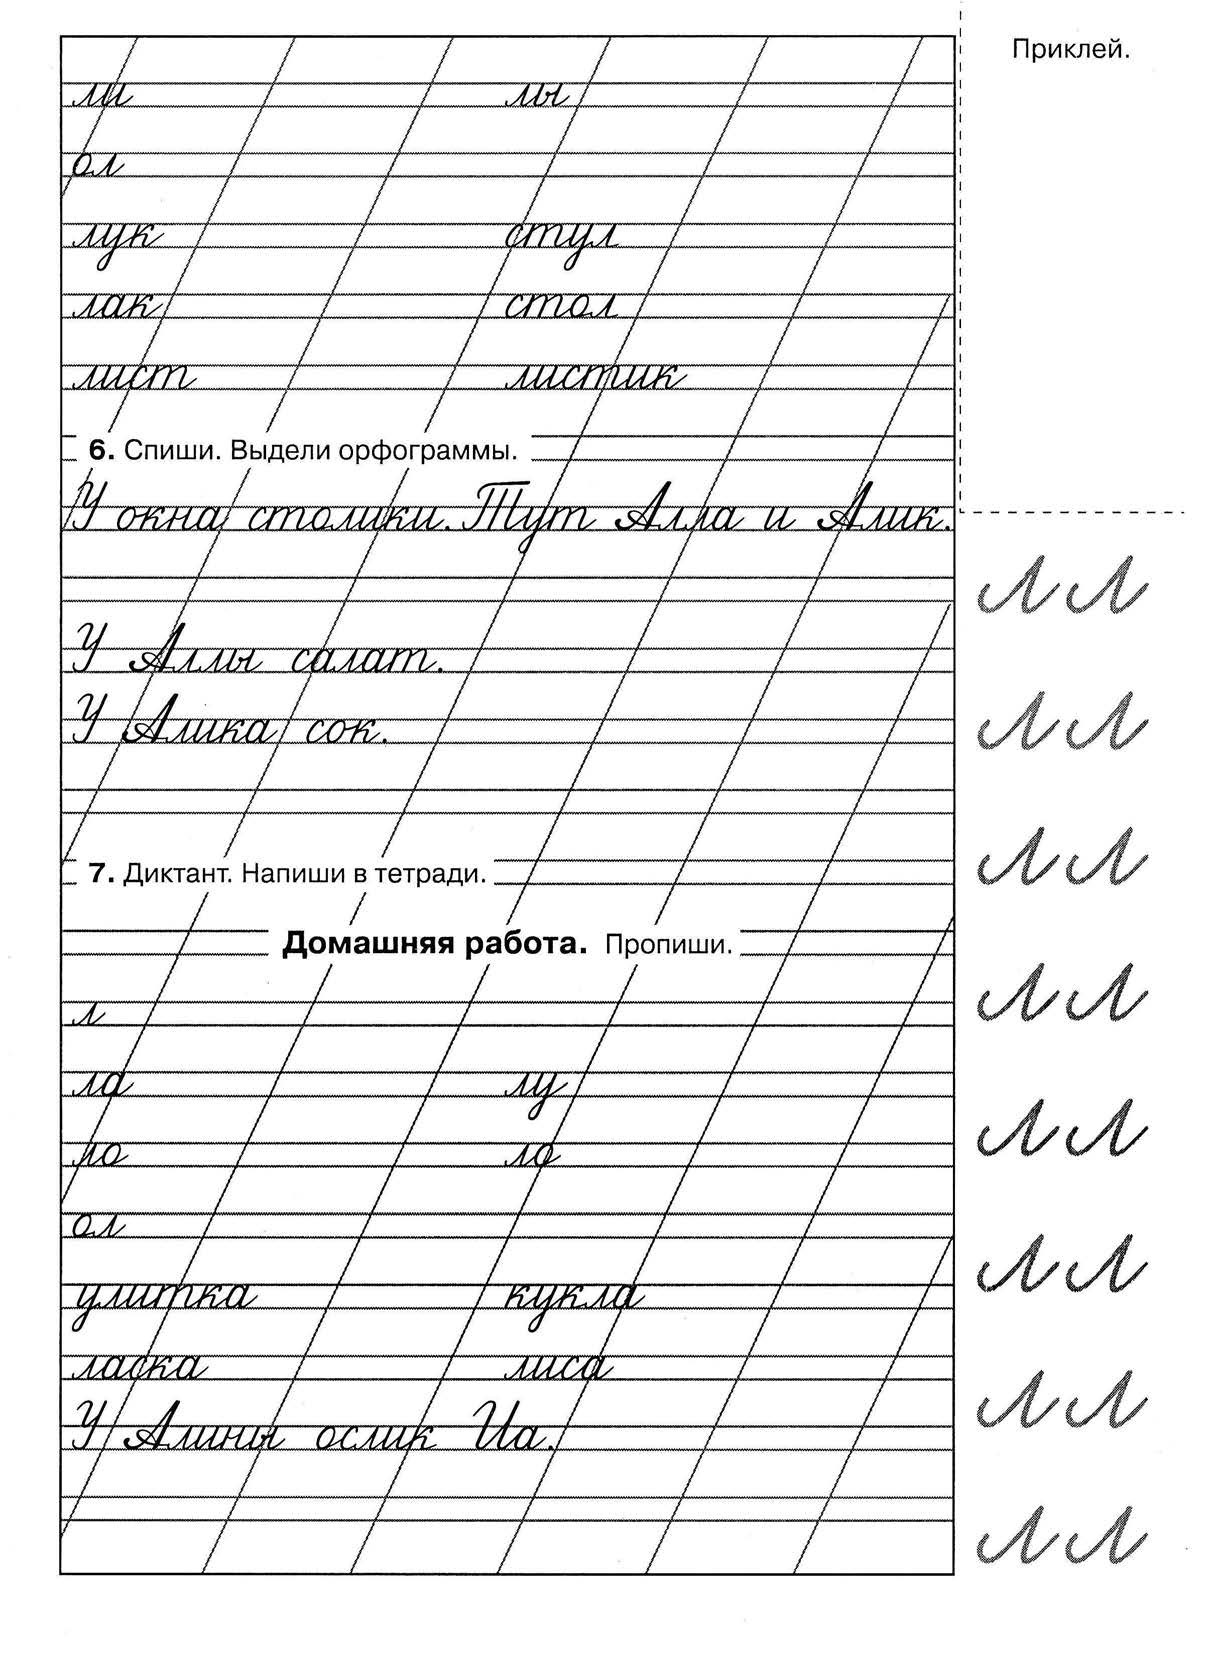 Приклей.
ли лы
ол
лук стул
лак стол
лист листик
6. Спиши. Выдели орфограммы.
У окна столики. Тут Алла и Алик.
У Аллы салат.
У Алика сок.
7. Диктант. Напиши в тетради.
Домашняя работа. Пропиши.
л
ла лу
ло ло
ол
улитка кукла
ласка лиса
У Алины ослик Иа.
л л
л л
л л
л л
л л
л л
л л
л л